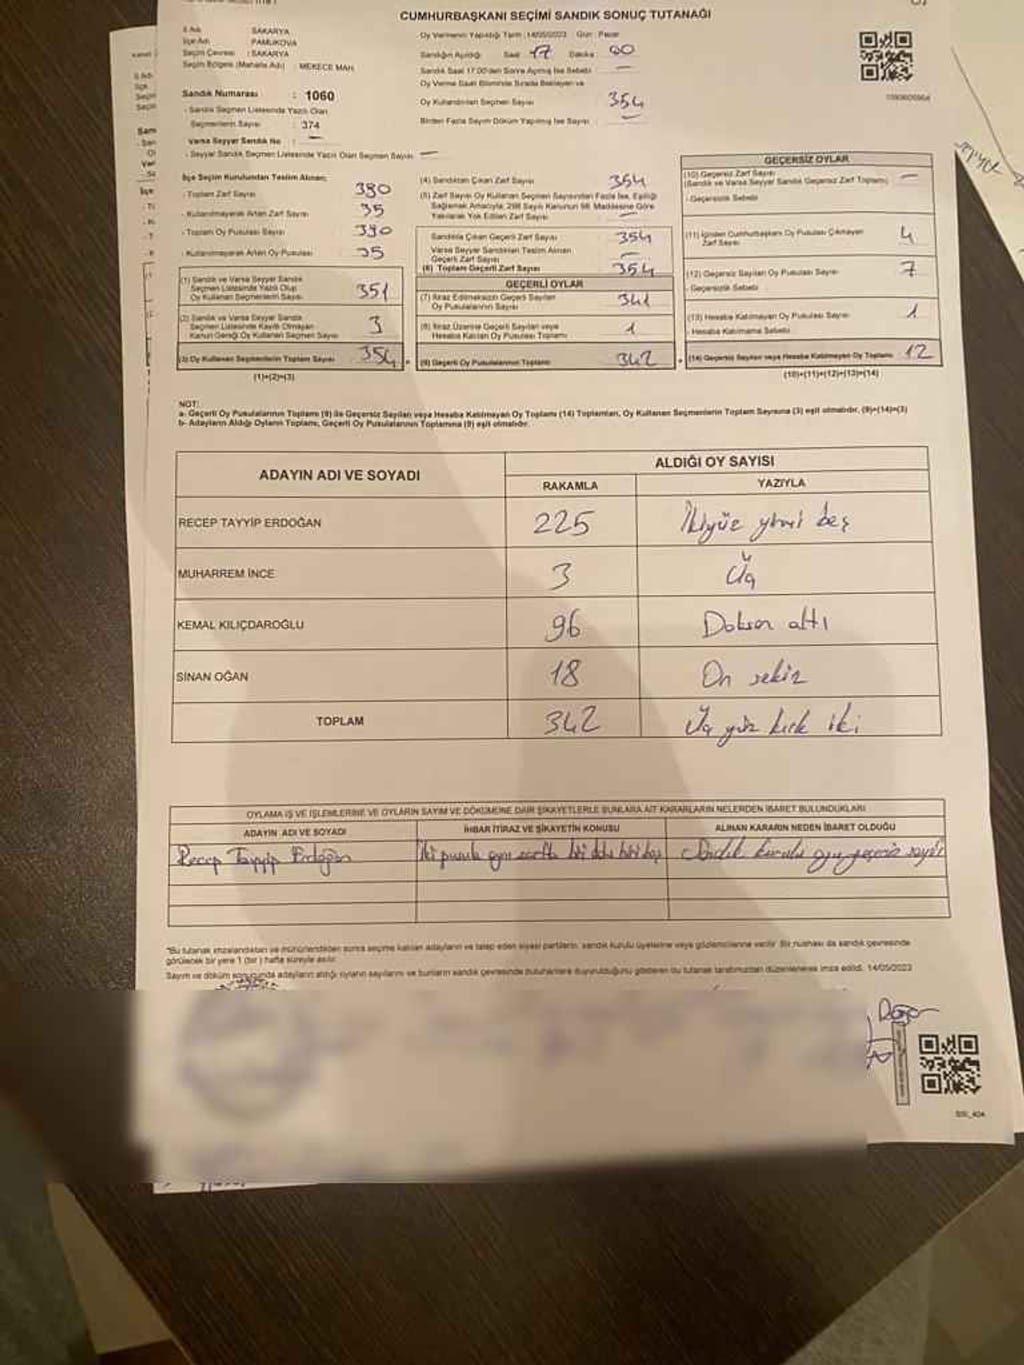 CUMHURBAŞKANI SEÇİMİ SANDIK SONUÇ TUTANAĞI
İl Adı SAKARYA
İlçe Adı PAMUKOVA
Seçim Çevresi : SAKARYA
Seçim Bölgesi (Mahalle Adı) : MEKECE MAH.
Sandık Numarası : 1060
- Sandık Seçmen Listesinde Yazılı Olan
Seçmenlerin Sayısı : 374
Varsa Seyyar Sandık No : —
- Seyyar Sandık Seçmen Listesinde Yazılı Olan Seçmen Sayısı —
Oy Vermenin Yapıldığı Tarih : 14/05/2023 Gün : Pazar
Sandığın Açıldığı Saat 17 Dakika 00
Sandık Saat 17.00'den Sonra Açılmış İse Sebebi —
Oy Verme Saati Bitiminde Sırada Bekleyen ve
Oy Kullandırılan Seçmen Sayısı 354
Birden Fazla Sayım Döküm Yapılmış İse Sayısı —
İlçe Seçim Kurulundan Teslim Alınan;
- Toplam Zarf Sayısı 390
- Kullanılmayarak Artan Zarf Sayısı 35
- Toplam Oy Pusulası Sayısı 390
- Kullanılmayarak Artan Oy Pusulası 35
(1) Sandık ve Varsa Seyyar Sandık
Seçmen Listesinde Yazılı Olup
Oy Kullanan Seçmenlerin Sayısı 351
(2) Sandık ve Varsa Seyyar Sandık
Seçmen Listesinde Kayıtlı Olmayan
Kanun Gereği Oy Kullanan Seçmen Sayısı 3
(3) Oy Kullanan Seçmenlerin Toplam Sayısı 354
(1)+(2)=(3)
(4) Sandıktan Çıkan Zarf Sayısı 354
(5) Zarf Sayısı Oy Kullanan Seçmen Sayısından Fazla İse, Eşitliği
Sağlamak Amacıyla; 298 Sayılı Kanunun 98. Maddesine Göre
Yakılarak Yok Edilen Zarf Sayısı —
Sandıkta Çıkan Geçerli Zarf Sayısı 354
Varsa Seyyar Sandıktan Teslim Alınan
Geçerli Zarf Sayısı —
(6) Toplam Geçerli Zarf Sayısı 354
GEÇERLİ OYLAR
(7) İtiraz Edilmeksizin Geçerli Sayılan
Oy Pusulalarının Sayısı 341
(8) İtiraz Üzerine Geçerli Sayılan veya
Hesaba Katılan Oy Pusulası Toplamı 1
(9) Geçerli Oy Pusulalarının Toplamı 342
GEÇERSİZ OYLAR
(10) Geçersiz Zarf Sayısı
(Sandık ve Varsa Seyyar Sandık Geçersiz Zarf Toplamı) —
- Geçersizlik Sebebi
(11) İçinden Cumhurbaşkanı Oy Pusulası Çıkmayan
Zarf Sayısı 4
(12) Geçersiz Sayılan Oy Pusulası Sayısı 7
- Geçersizlik Sebebi
(13) Hesaba Katılmayan Oy Pusulası Sayısı 1
- Hesaba Katılmama Sebebi
(14) Geçersiz Sayılan veya Hesaba Katılmayan Oy Toplamı 12
(10)+(11)+(12)+(13)=(14)
NOT:
a- Geçerli Oy Pusulalarının Toplamı (9) ile Geçersiz Sayılan veya Hesaba Katılmayan Oy Toplamı (14) Toplamları, Oy Kullanan Seçmenlerin Toplam Sayısına (3) eşit olmalıdır. (9)+(14)=(3)
b- Adayların Aldığı Oyların Toplamı, Geçerli Oy Pusulalarının Toplamına (9) eşit olmalıdır.
ADAYIN ADI VE SOYADI ALDIĞI OY SAYISI
RAKAMLA YAZIYLA
RECEP TAYYİP ERDOĞAN 225 İkiyüz yirmi beş
MUHARREM İNCE 3 Üç
KEMAL KILIÇDAROĞLU 96 Doksan altı
SİNAN OĞAN 18 On sekiz
TOPLAM 342 Üç yüz kırk iki
OYLAMA İŞ VE İŞLEMLERİNE VE OYLARIN SAYIM VE DÖKÜMÜNE DAİR ŞİKAYETLERLE BUNLARA AİT KARARLARIN NELERDEN İBARET BULUNDUKLARI
ADAYIN ADI VE SOYADI İHBAR İTİRAZ VE ŞİKAYETİN KONUSU ALINAN KARARIN NEDEN İBARET OLDUĞU
Recep Tayyip Erdoğan İki pusula aynı zarfta biri dolu biri boş Sandık kurulu oyu geçerli saydı
*Bu tutanak imzalandıktan ve mühürlendikten sonra seçime katılan adayların ve talep eden siyasi partilerin, sandık kurulu üyelerine veya gözlemcilerine verilir. Bir nüshası da sandık çevresinde
görülecek bir yere 1 (bir) hafta süreyle asılır.
Sayım ve döküm sonucunda adayların aldığı oyların sayılarını ve bunların sandık çevresinde bulunanlara duyurulduğunu gösteren bu tutanak tarafımızdan düzenlenerek imza edildi. 14/05/2023